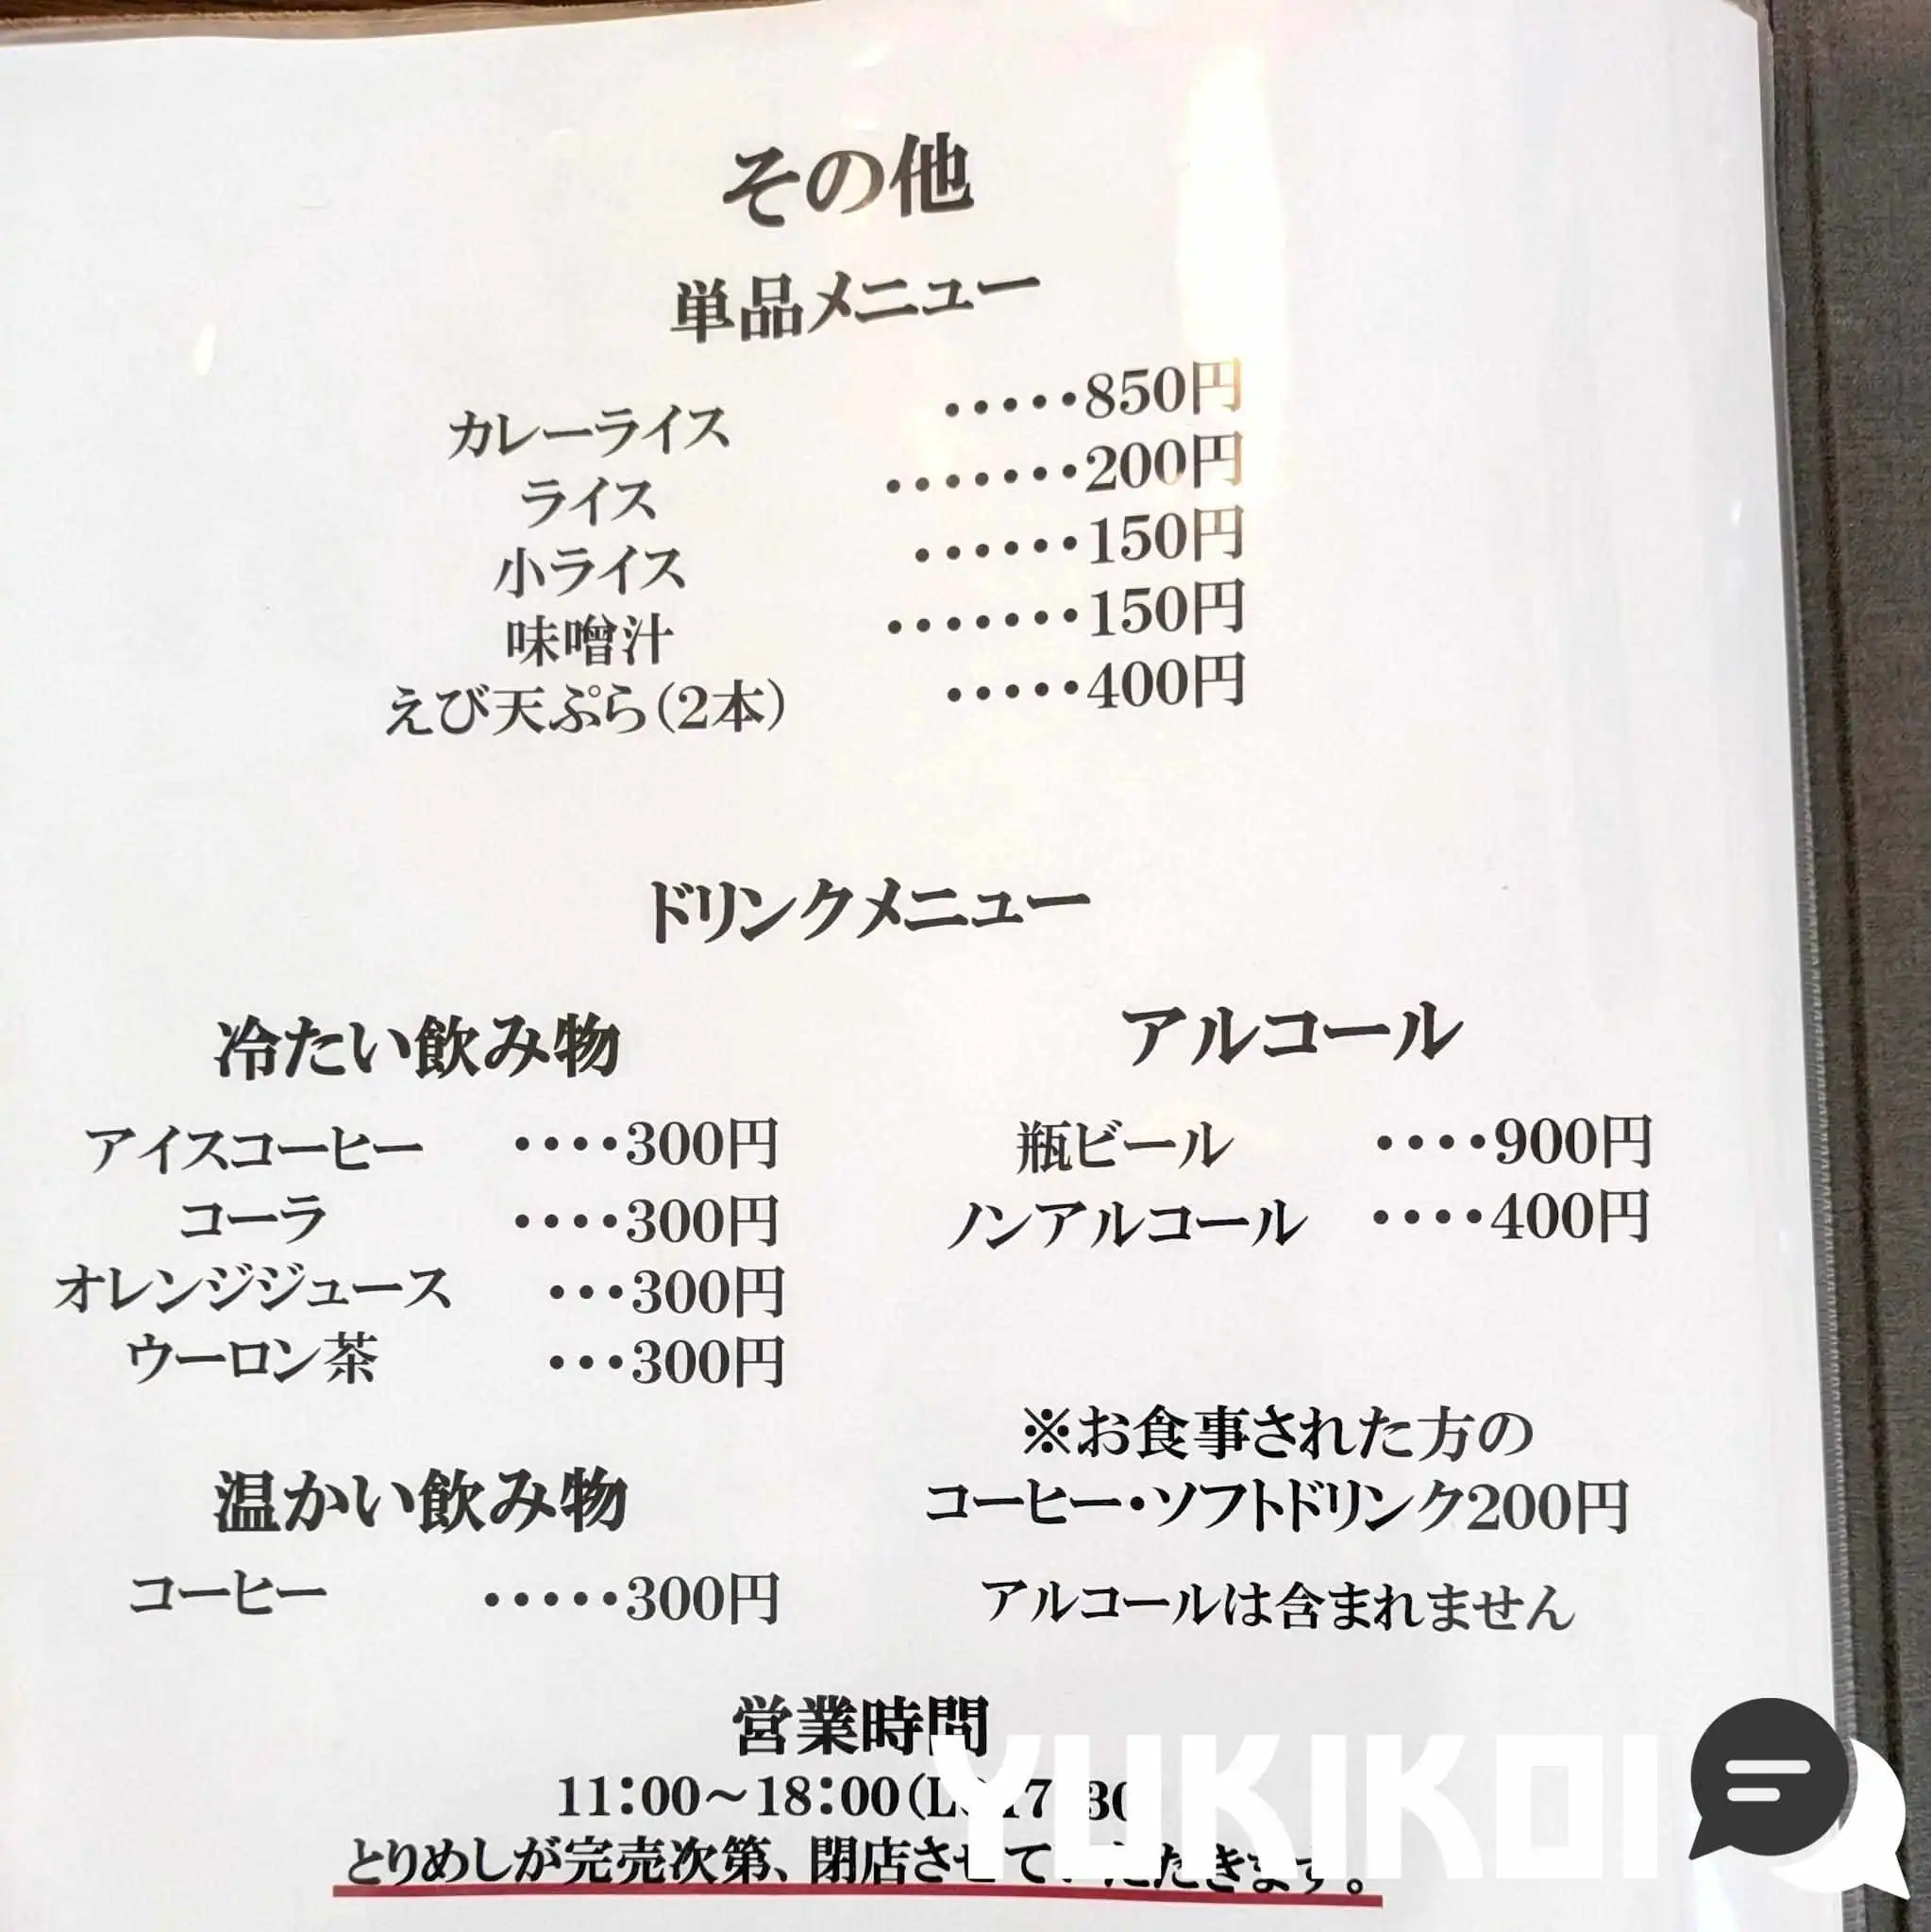 その他
単品メニュー
カレーライス ・・・・・850円
ライス ・・・・・・・200円
小ライス ・・・・・・150円
味噌汁 ・・・・・・・150円
えび天ぷら(2本) ・・・・・400円
ドリンクメニュー
冷たい飲み物
アイスコーヒー ・・・・300円
コーラ ・・・・300円
オレンジジュース ・・・300円
ウーロン茶 ・・・300円
温かい飲み物
コーヒー ・・・・・300円
アルコール
瓶ビール ・・・・900円
ノンアルコール ・・・・400円
※お食事された方の
コーヒー・ソフトドリンク200円
アルコールは含まれません
営業時間
11:00〜18:00(L 17 30
とりめしが完売次第、閉店させていただきます。
YUKIKOI